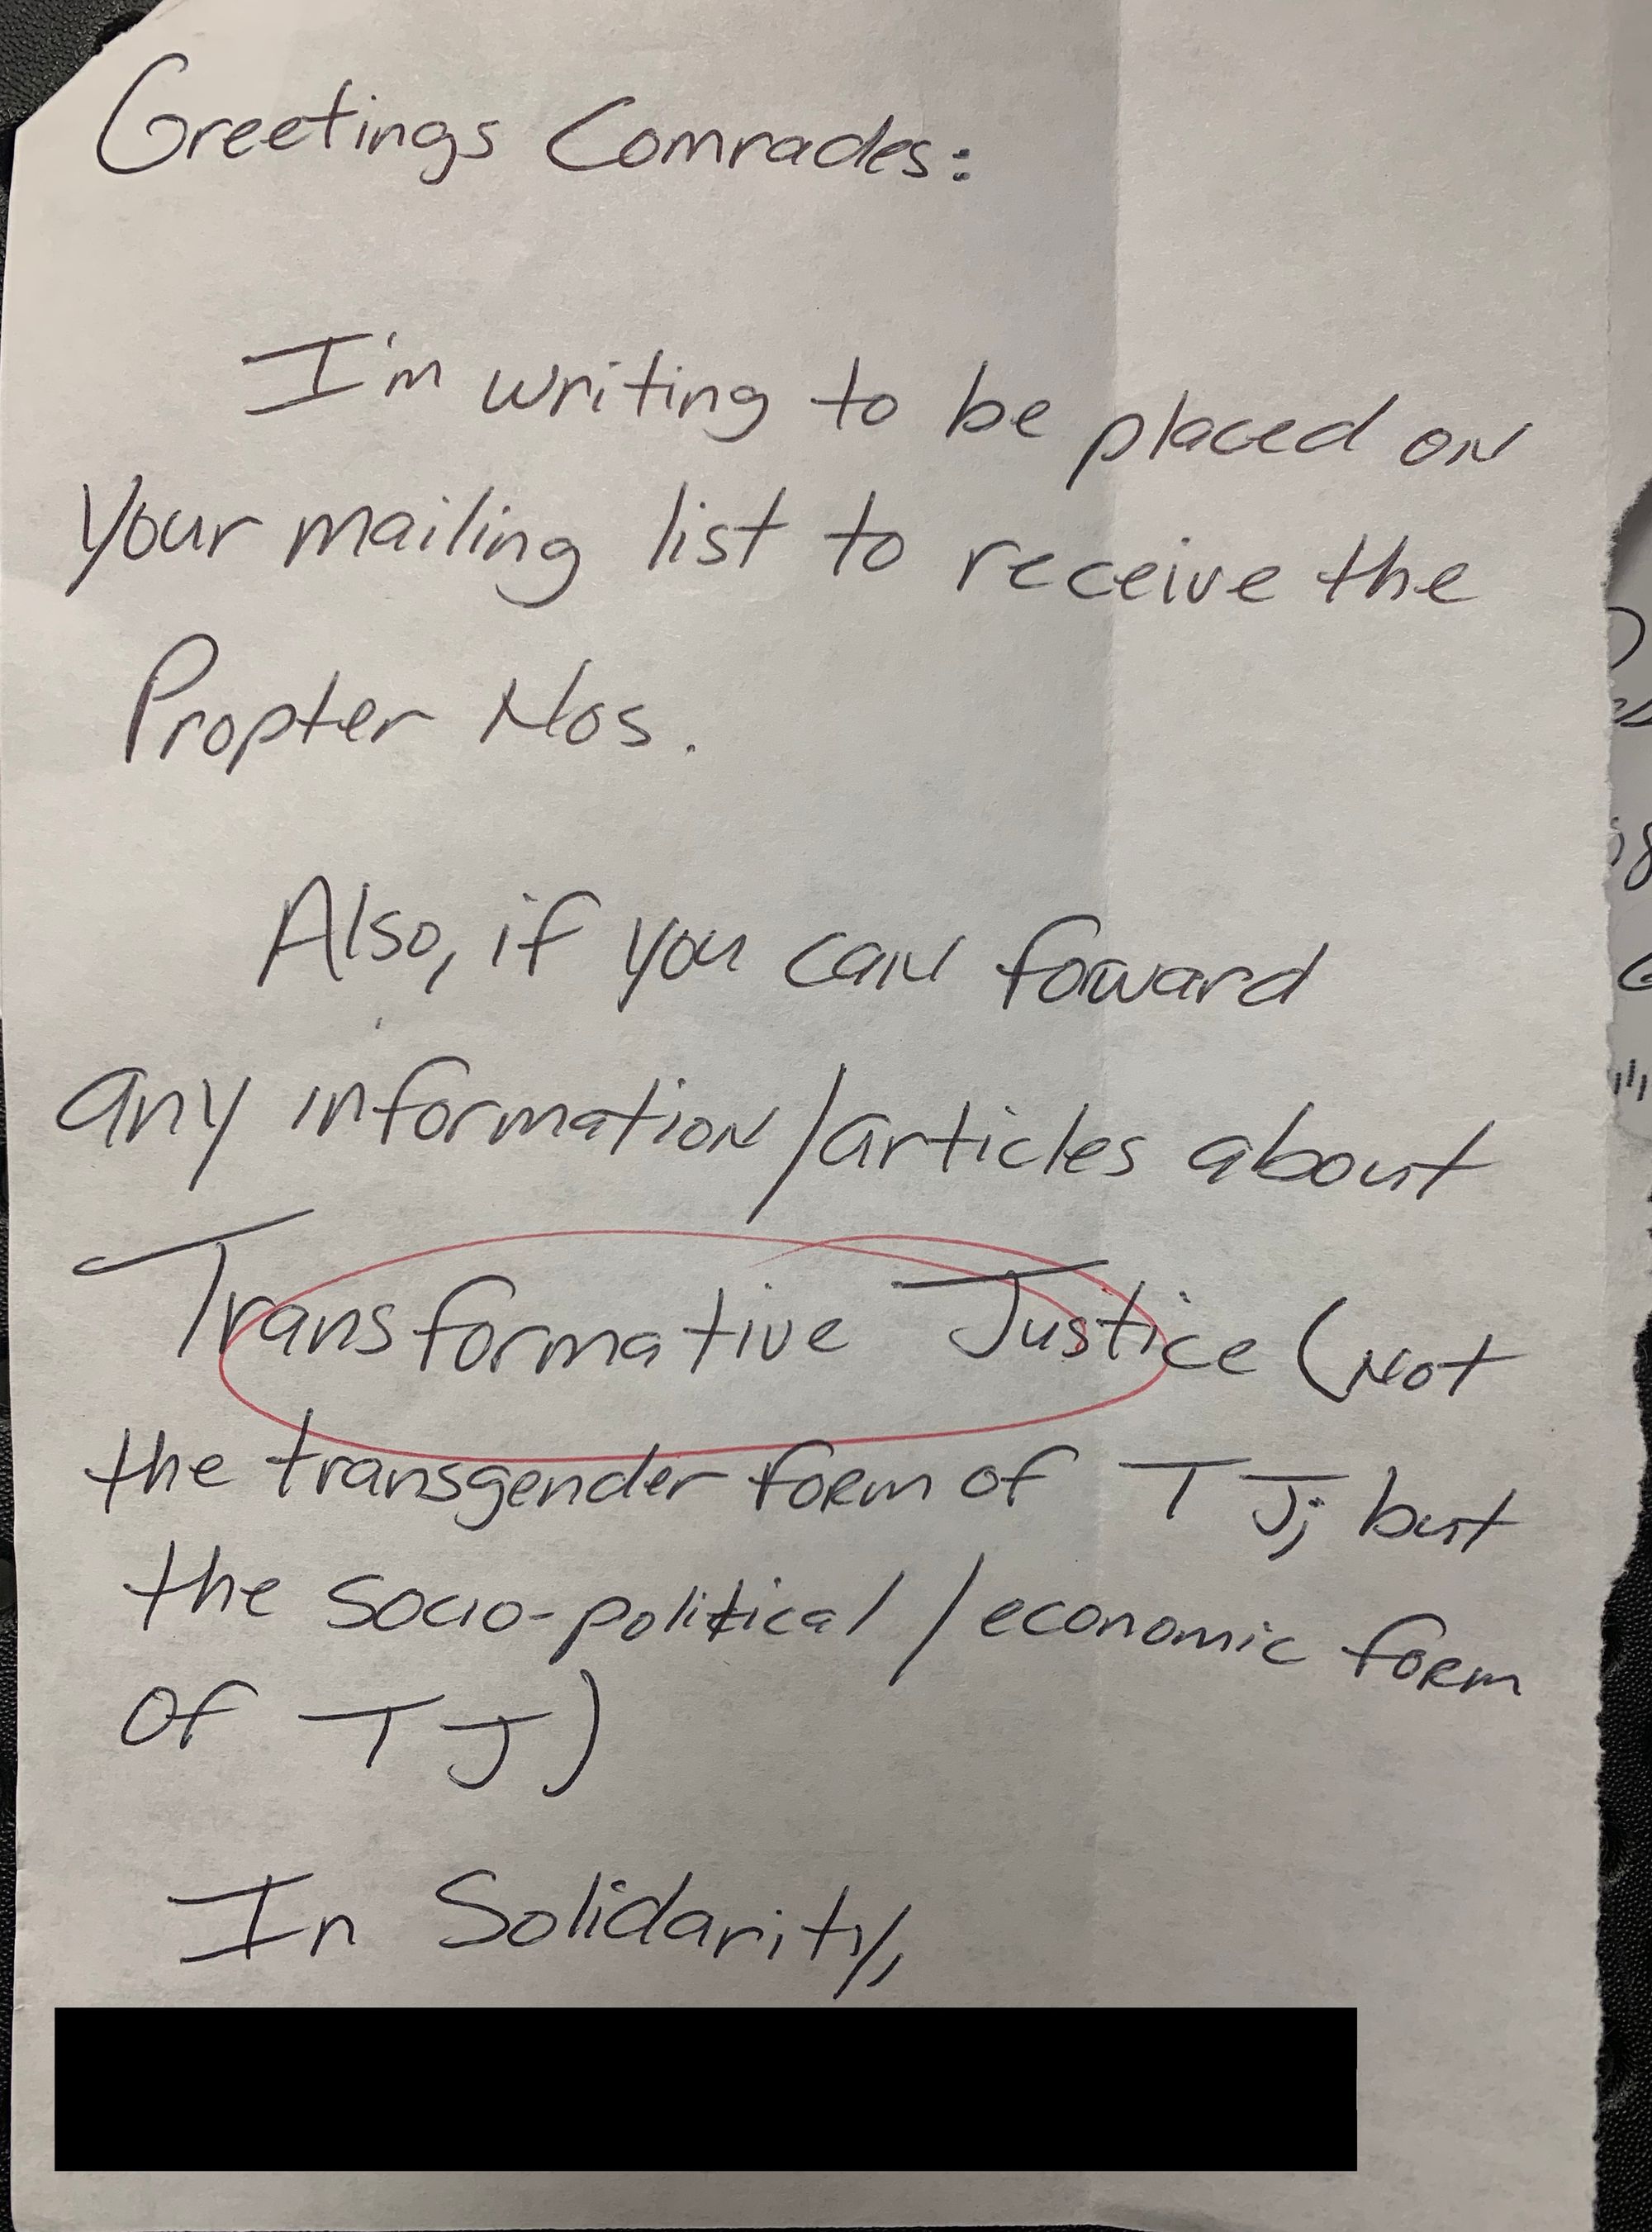 Greetings Comrades:
I'm writing to be placed on
your mailing list to receive the
Propter Nos.
Also, if you can forward
any information/articles about
Transformative Justice (Not
the transgender form of TJ; but
the socio-political/economic form
of TJ)
In Solidarity,